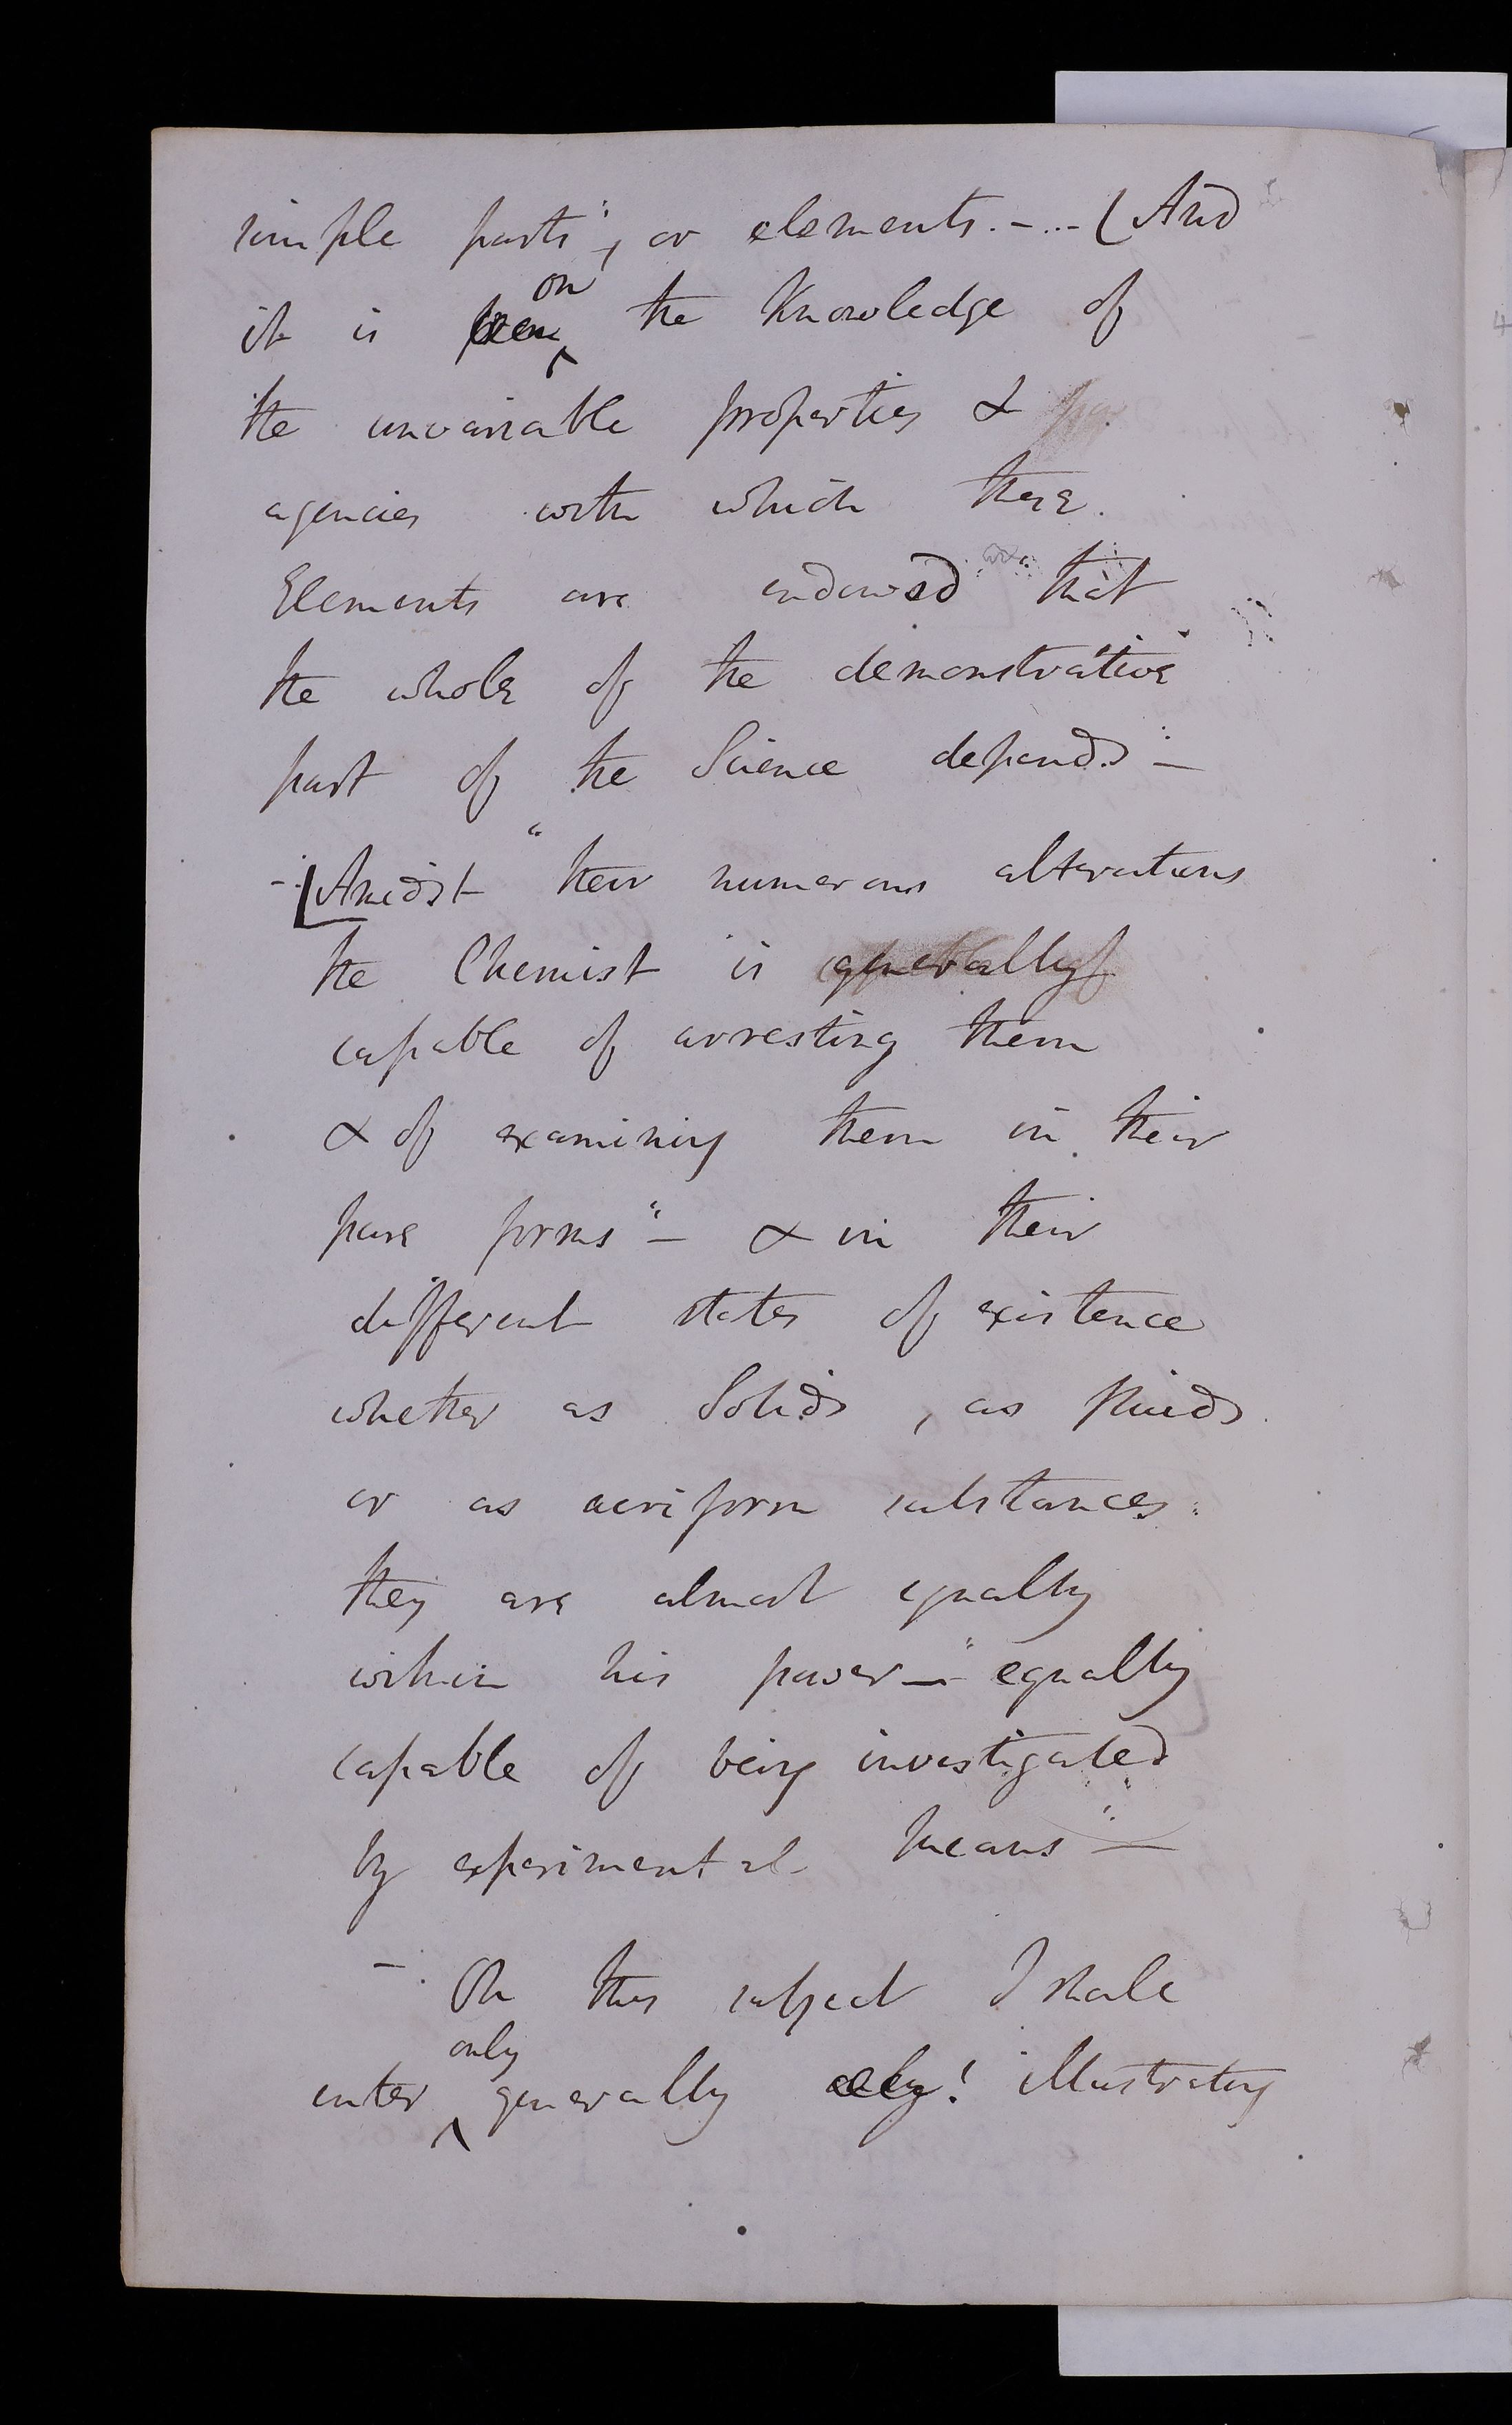 simple parts", or elements. - ... - ( And
it is on the Knowledge of
the unvariable properties &
agencies with which these.
Elements are endowed that
the whole of the demonstrative
part of the Science depends" -
- [Amidst "their numerous alterations
the Chemist is generally
capable of arresting them
& of examining them in their
pure forms" - & in their
different states of existence
whether as Solids, as fluids
or as aeriform substances.
they are almost equally
within his power - "equally
capable of being investigated
by experimental means" -
- On this subject I shall
enter only generally illustrating